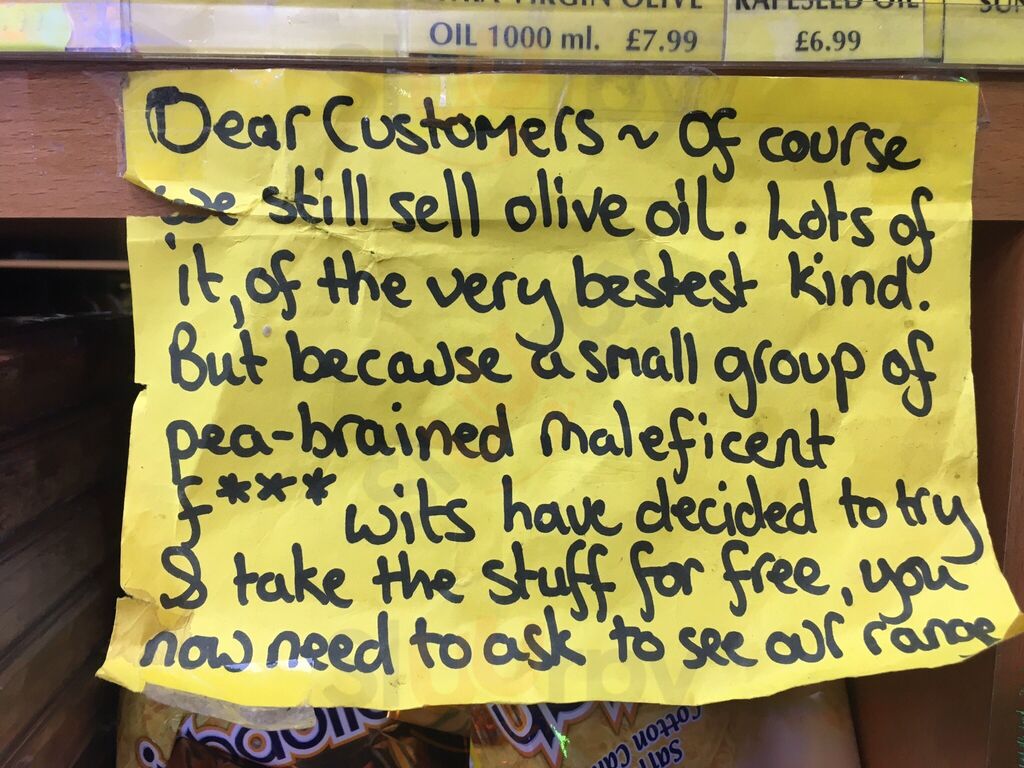 VIRGIN OLIVE
OIL 1000 ml. £7.99
RAPESEED OIL
£6.99
Dear Customers ~ Of course
we still sell olive oil. Lots of
it, of the very bestest kind.
But because a small group of
pea-brained maleficent
f*** wits have decided to try
& take the stuff for free, you
now need to ask to see our range